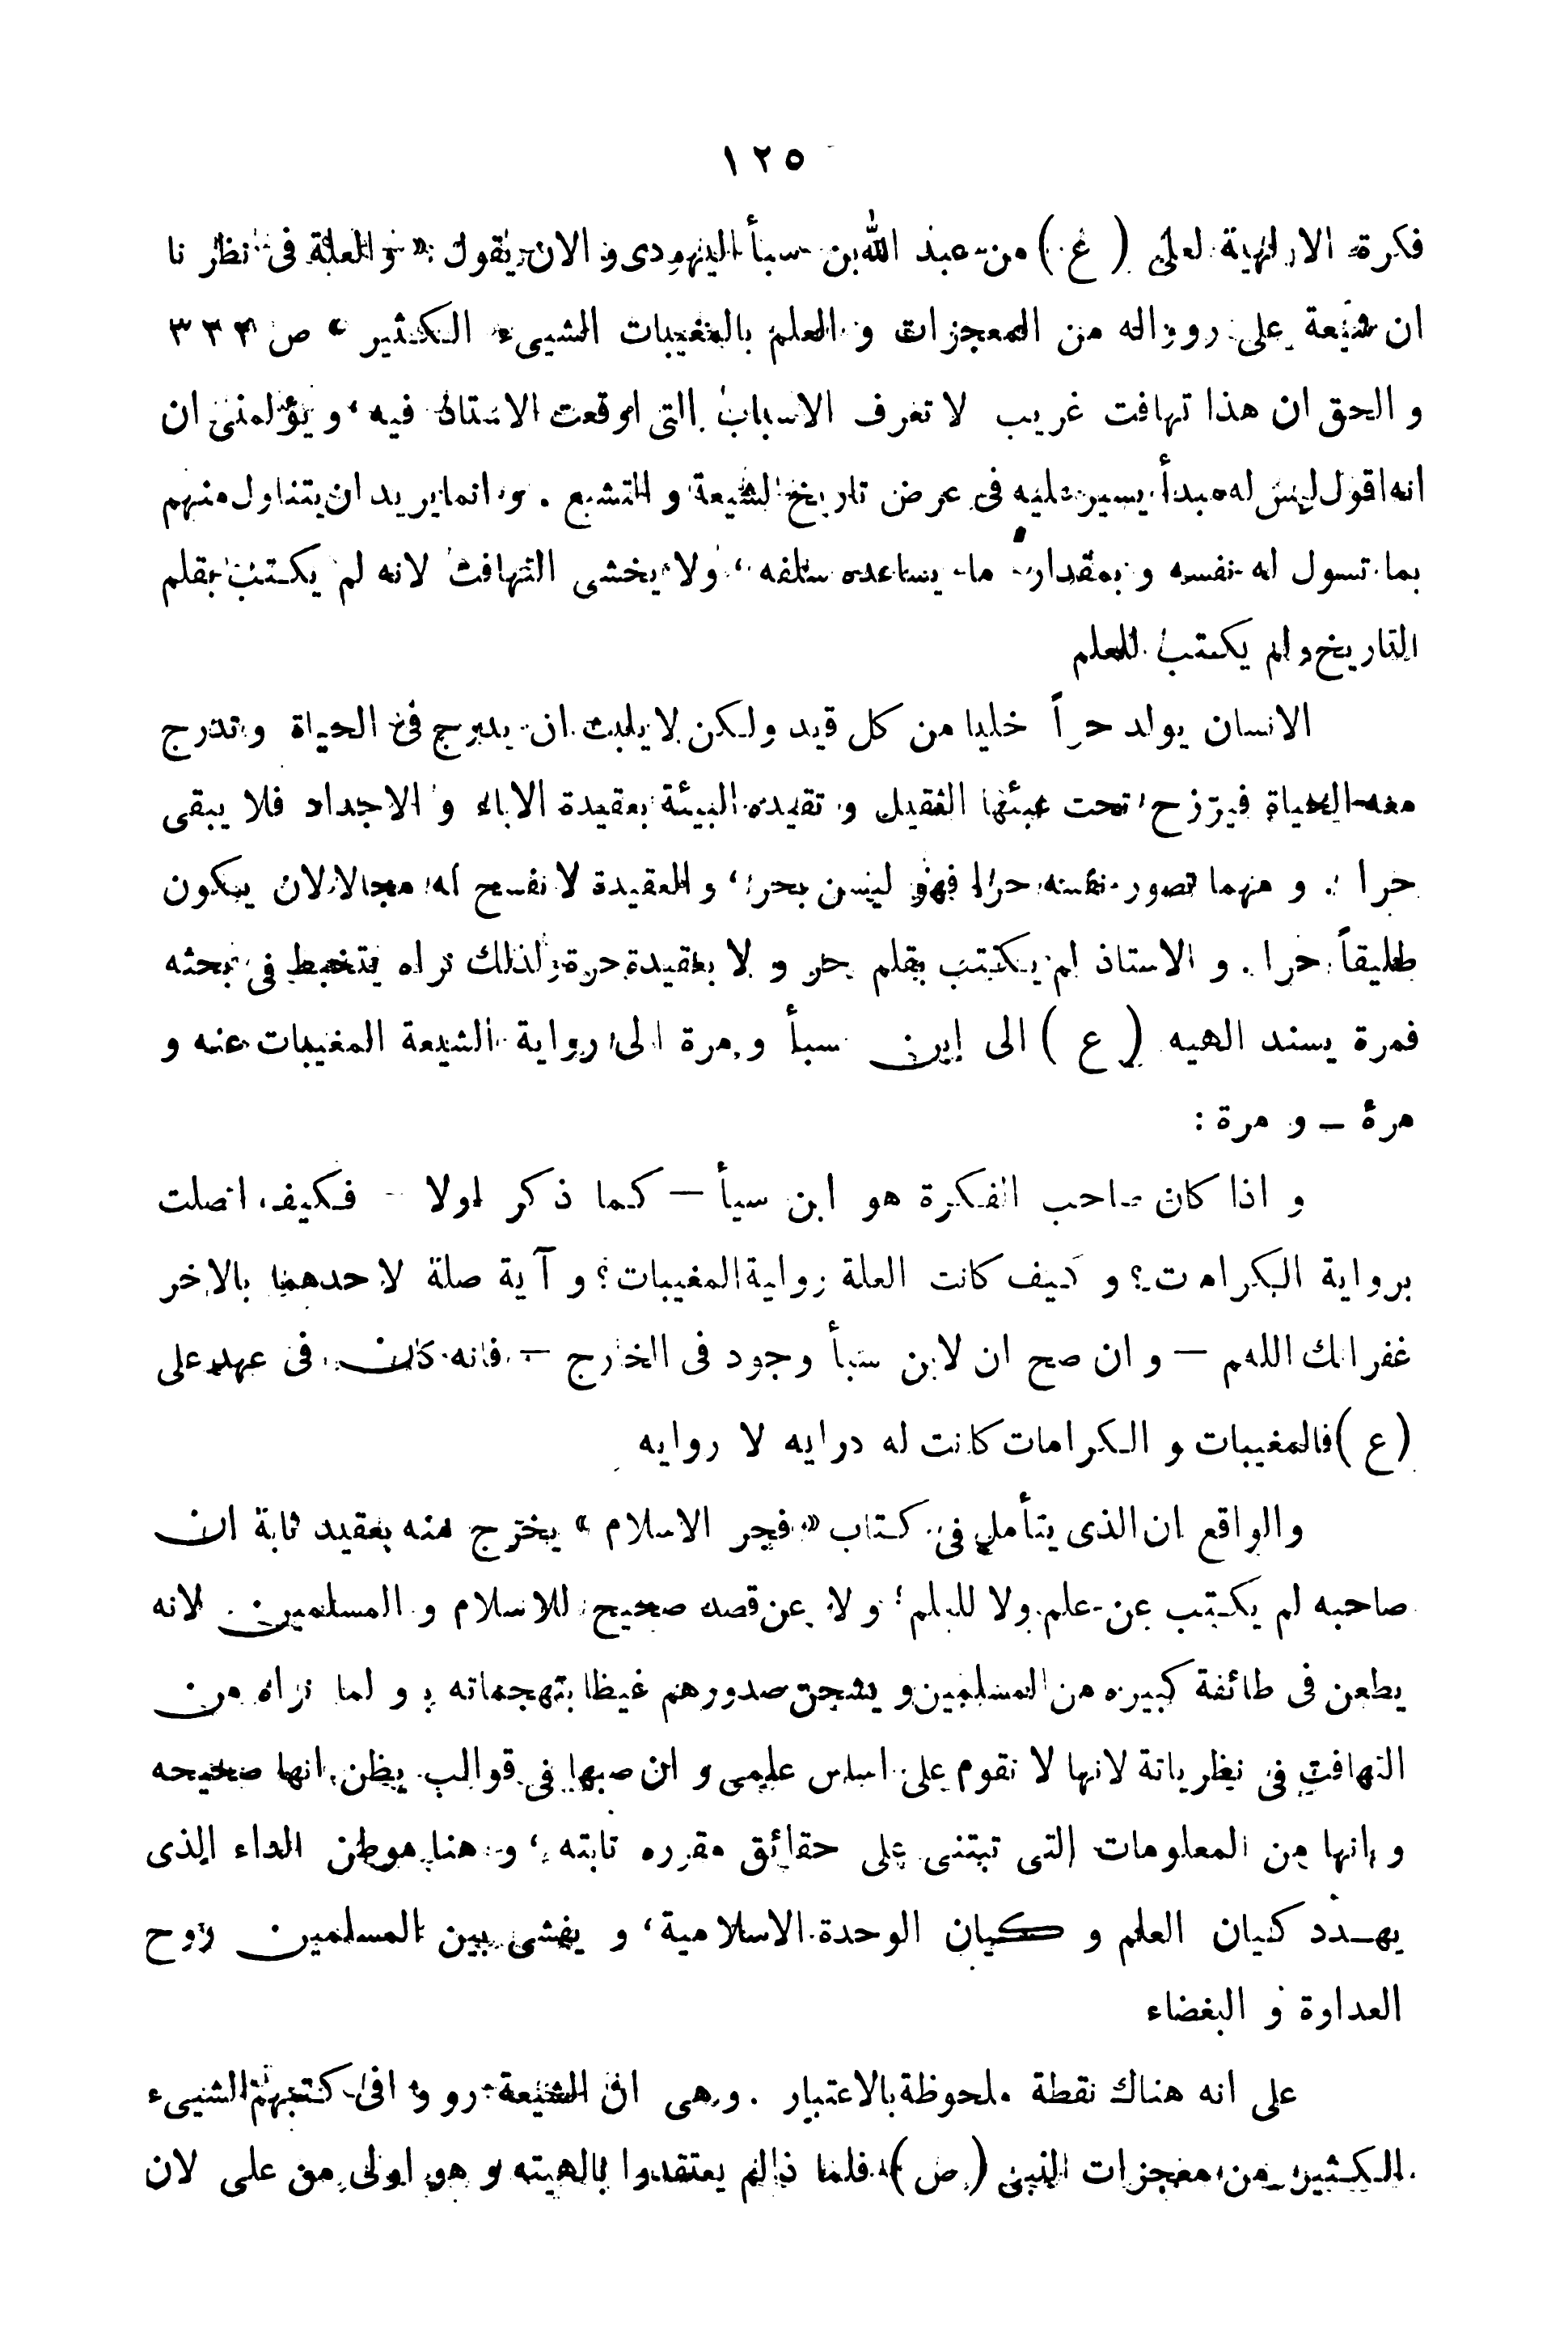 ١٢٥
فكرة الالهية لعلى ( ع ) من عبد الله بن سبأ اليهودى و الان يقول : « و العلة فى نظر نا
ان شيعة على رووا له من المعجزات و العلم بالمغيبات الشيىء الكثير » ص ٣٣٣
و الحق ان هذا تهافت غريب لا تعرف الاسباب التى اوقعت الاستاذ فيه ، و يؤلمنى ان
انه اقول ليس له مبدأ يسير عليه فى عرض تاريخ الشيعة و التشيع . و انما يريد ان يتناول منهم
بما تسول له نفسه و بمقدار ما يساعده سلفه ، ولا يخشى التهافت لانه لم يكتب بقلم
التاريخ و لم يكتب للعلم
الانسان يولد حراً خليا من كل قيد ولكن لا يلبث ان يدرج فى الحياة و تدرج
معه الحياة فيرزح تحت عبئها الثقيل و تقيده البيئة بعقيدة الاباء و الاجداد فلا يبقى
حرا . و مهما تصور نفسه حرا فهو ليس بحر ، و العقيدة لا نفسح له مجالا لان يكون
طليقاً حرا . و الاستاذ لم يكتب بقلم حر و لا بعقيدة حرة لذلك نراه يتخبط فى بحثه
فمرة يسند الهيه ( ع ) الى ابن سبأ و مرة الى رواية الشيعة المغيبات عنه و
مرة ـ و مرة :
و اذا كان صاحب الفكرة هو ابن سبأ — كما ذكر اولا - فكيف اتصلت
برواية الكرامت ؟ و كيف كانت العلة رواية المغيبات ؟ و آية صلة لاحدهما بالاخر
غفرانك اللهم — و ان صح ان لابن سبأ وجود فى الخارج — فانه كان فى عهد على
( ع ) فالمغيبات و الكرامات كانت له درايه لا روايه
والواقع ان الذى يتأمل فى كتاب « فجر الاسلام » يخرج منه بعقيد ثابة ان
صاحبه لم يكتب عن علم ولا للعلم ؛ و لا عن قصد صحيح للاسلام و المسلمين لانه
يطعن فى طائفة كبيره من المسلمين و يشحن صدورهم غيظا بتهجماته ؛ و لما نراه من
التهافت فى نظرياتة لانها لا نقوم على اساس علمى و ان صبها فى قوالب يظن انها صحيحه
و انها من المعلومات التى تبتنى على حقائق مقرره ثابته ، و هنا موطن الداء الذى
يهدد كيان العلم و كيان الوحدة الاسلامية ، و يفشى بين المسلمين روح
العداوة و البغضاء
على انه هناك نقطة ملحوظة بالاعتبار . و هى ان الشيعة رووا فى كتبهم الشيىء
الكثير من معجزات النبى ( ص ) فلما ذا لم يعتقدوا بالهيته و هو اولى من على لان